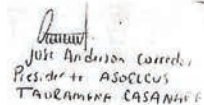 José Anderson Corredor
Presidente ASOCLCUS
TAURAMENA CASANARE